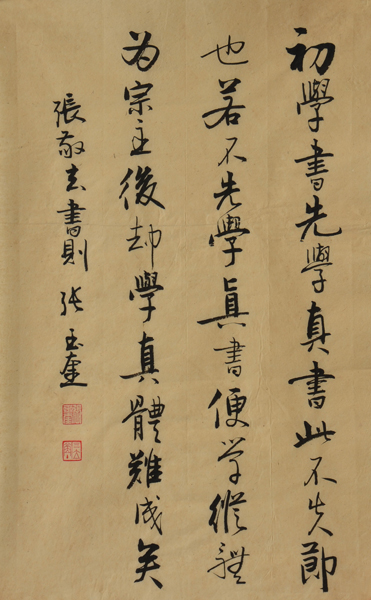 初學書先學真書此不失節
也若不先學眞書便学縱體
为宗主後却學真體難成矣
張敬玄書則 张玉奎